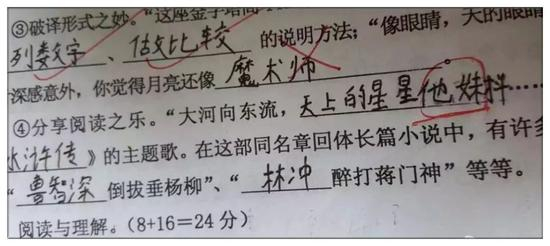 ③破译形式之妙。“这座金字塔高
列数字、做比较 的说明方法；“像眼睛，天的眼睛
深感意外，你觉得月亮还像 魔术师 。
④分享阅读之乐。“大河向东流，天上的星星他妹样……
水浒传》的主题歌。在这部同名章回体长篇小说中，有许多
“鲁智深 倒拔垂杨柳”、“林冲 醉打蒋门神”等等。
阅读与理解。（8+16＝24 分）